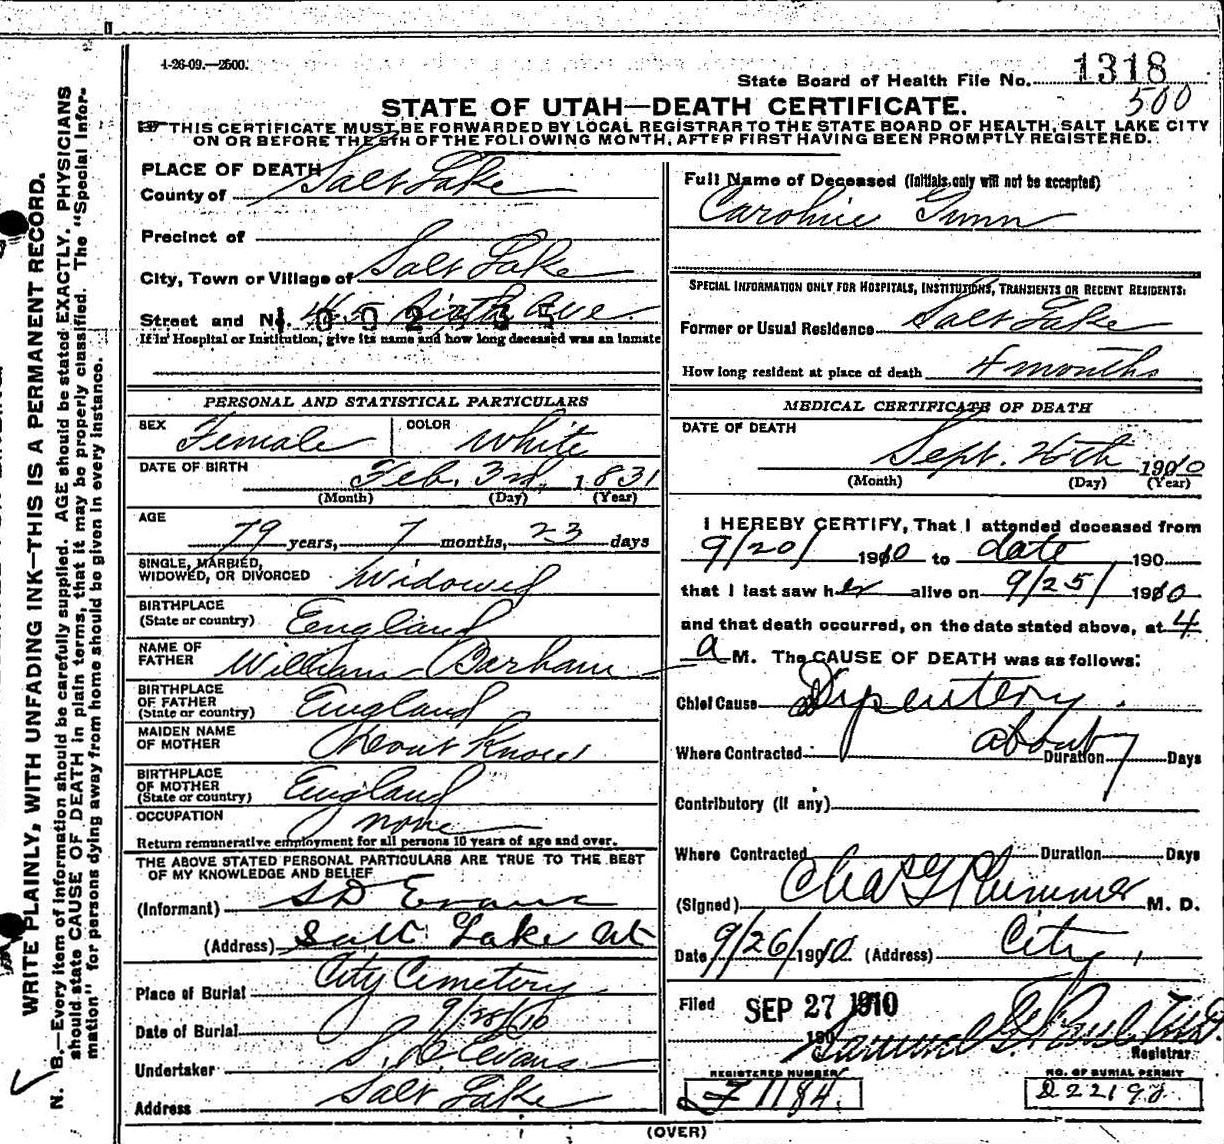 1-26-09.—2500.
State Board of Health File No. 1318
500
STATE OF UTAH—DEATH CERTIFICATE.
THIS CERTIFICATE MUST BE FORWARDED BY LOCAL REGISTRAR TO THE STATE BOARD OF HEALTH, SALT LAKE CITY
ON OR BEFORE THE 5TH OF THE FOLLOWING MONTH, AFTER FIRST HAVING BEEN PROMPTLY REGISTERED.
WRITE PLAINLY, WITH UNFADING INK—THIS IS A PERMANENT RECORD.
N. B.—Every item of information should be carefully supplied. AGE should be stated EXACTLY. PHYSICIANS
should state CAUSE OF DEATH in plain terms, that it may be properly classified. The "Special Infor-
mation" for persons dying away from home should be given in every instance.
PLACE OF DEATH
County of Salt Lake
Precinct of
City, Town or Village of Salt Lake
Street and No. Sixth Ave.
If in Hospital or Institution, give its name and how long deceased was an inmate
PERSONAL AND STATISTICAL PARTICULARS
SEX Female COLOR White
DATE OF BIRTH Feb. 3rd, 1831
(Month) (Day) (Year)
AGE
79 years, 7 months, 23 days
SINGLE, MARRIED,
WIDOWED, OR DIVORCED Widowed
BIRTHPLACE
(State or country) England
NAME OF
FATHER William Barham
BIRTHPLACE
OF FATHER
(State or country) England
MAIDEN NAME
OF MOTHER Dont Know
BIRTHPLACE
OF MOTHER
(State or country) England
OCCUPATION none
Return remunerative employment for all persons 10 years of age and over.
THE ABOVE STATED PERSONAL PARTICULARS ARE TRUE TO THE BEST
OF MY KNOWLEDGE AND BELIEF
(Informant) S D Evans
(Address) Salt Lake Ut
Place of Burial City Cemetery
Date of Burial 9/28/10
Undertaker S. D. Evans
Address Salt Lake
Full Name of Deceased (Initials only will not be accepted)
Caroline Gunn
SPECIAL INFORMATION ONLY FOR HOSPITALS, INSTITUTIONS, TRANSIENTS OR RECENT RESIDENTS:
Former or Usual Residence Salt Lake
How long resident at place of death 4 months
MEDICAL CERTIFICATE OF DEATH
DATE OF DEATH
Sept. 26th 1910
(Month) (Day) (Year)
I HEREBY CERTIFY, That I attended deceased from
9/20/ 1910 to date 190
that I last saw her alive on 9/25/ 1910
and that death occurred, on the date stated above, at 4
a M. The CAUSE OF DEATH was as follows:
Chief Cause Dysentery.
Where Contracted about Duration 7 Days
Contributory (if any)
Where Contracted Duration Days
(Signed) Chas G Plummer M. D.
Date 9/26/1910. (Address) City.
Filed SEP 27 1910
190
Samuel G. Paul
Registrar
REGISTERED NUMBER NO. OF BURIAL PERMIT
J 1184. D22198.
(OVER)